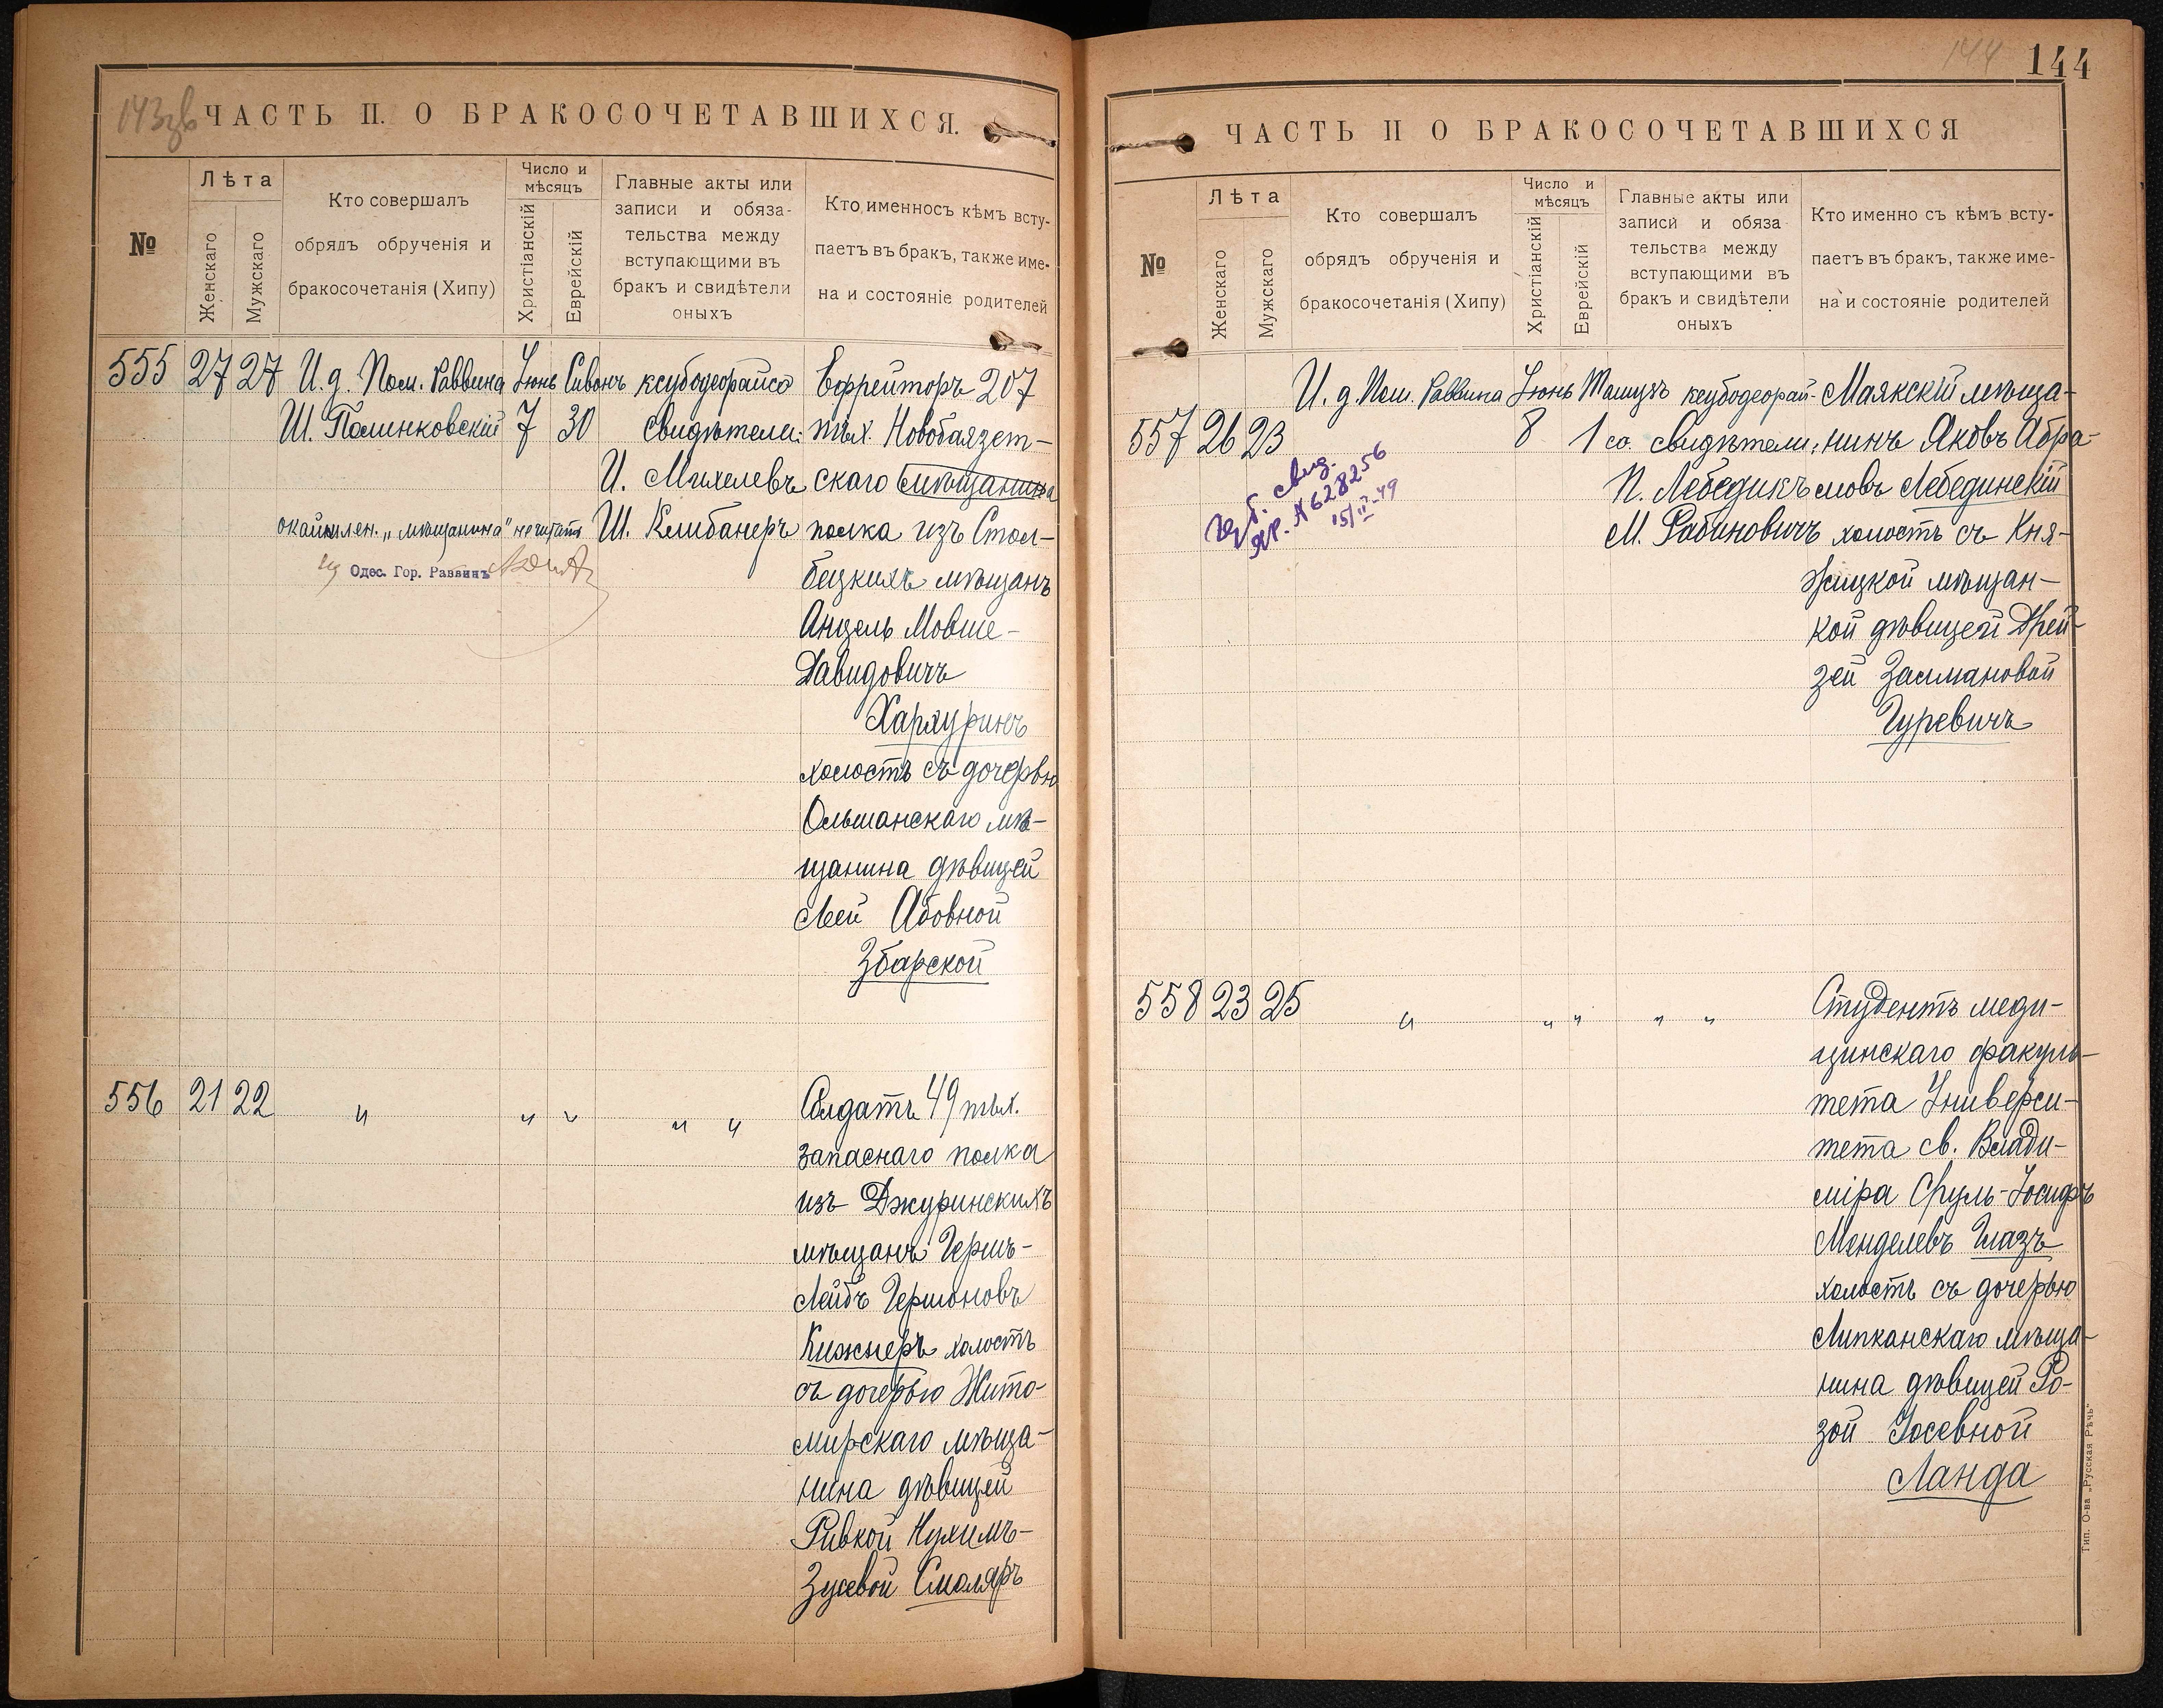 143зв
ЧАСТЬ II. О БРАКОСОЧЕТАВШИХСЯ.
№
Лѣта
Женскаго
Мужскаго
Кто совершалъ
обрядъ обрученія и
бракосочетанія (Хипу)
Число и
мѣсяцъ
Христіанскій
Еврейскій
Главные акты или
записи и обяза-
тельства между
вступающими въ
бракъ и свидѣтели
оныхъ
Кто именно съ кѣмъ всту-
паетъ въ бракъ, также име-
на и состояніе родителей
555 27 27
И.д. Пом. Раввина
Ш. Полинковскій
Іюнь
7
Сивонъ
30
ксубодеорайсо
Свидѣтели:
И. Михелевъ
Ш. Клибанеръ
окаймлен. „мѣщанина" не читать
Одес. Гор. Раввинъ
Ефрейторъ 207
пѣх. Новобаязет-
скаго мѣщанина
полка изъ Стол-
бецкихъ мѣщанъ
Анцель Мовше-
Давидовичъ
Хархуринъ
холостъ съ дочерью
Ольшанскаго мѣ-
щанина дѣвицей
Леей Абовной
Збарской
556 21 22
" " " " "
Солдатъ 49 пѣх.
запаснаго полка
изъ Джуринскихъ
мѣщанъ Герш-
Лейбъ Гершоновъ
Кижнеръ холостъ
съ дочерью Жито-
мирскаго мѣща-
нина дѣвицей
Ривкой Нухимъ-
Зусевой Смоляръ
144
144
ЧАСТЬ II О БРАКОСОЧЕТАВШИХСЯ
№
Лѣта
Женскаго
Мужскаго
Кто совершалъ
обрядъ обрученія и
бракосочетанія (Хипу)
Число и
мѣсяцъ
Христіанскій
Еврейскій
Главные акты или
записи и обяза-
тельства между
вступающими въ
бракъ и свидѣтели
оныхъ
Кто именно съ кѣмъ всту-
паетъ въ бракъ, также име-
на и состояніе родителей
557 26 23
И.д. Пом. Раввина
Іюнь
8
Тамузъ
1
ксубодеорай-
со. Свидѣтели:
П. Лебедикъ
М. Рабиновичъ
свид.
№ 628256
15/II-49
Маякскій мѣща-
нинъ Яковъ Абра-
мовъ Лебединскій
холостъ съ Кня-
жицкой мѣщан-
кой дѣвицей Дрей-
зей Залмановой
Гуревичъ
558 23 25
" " " " "
Студентъ меди-
цинскаго факуль-
тета Универси-
тета св. Влади-
міра Сруль-Іосифъ
Менделевъ Глазъ
холостъ съ дочерью
Липканскаго мѣща-
нина дѣвицей Ро-
зой Іосевной
Ланда
Тип. О-ва „Русская Рѣчь"